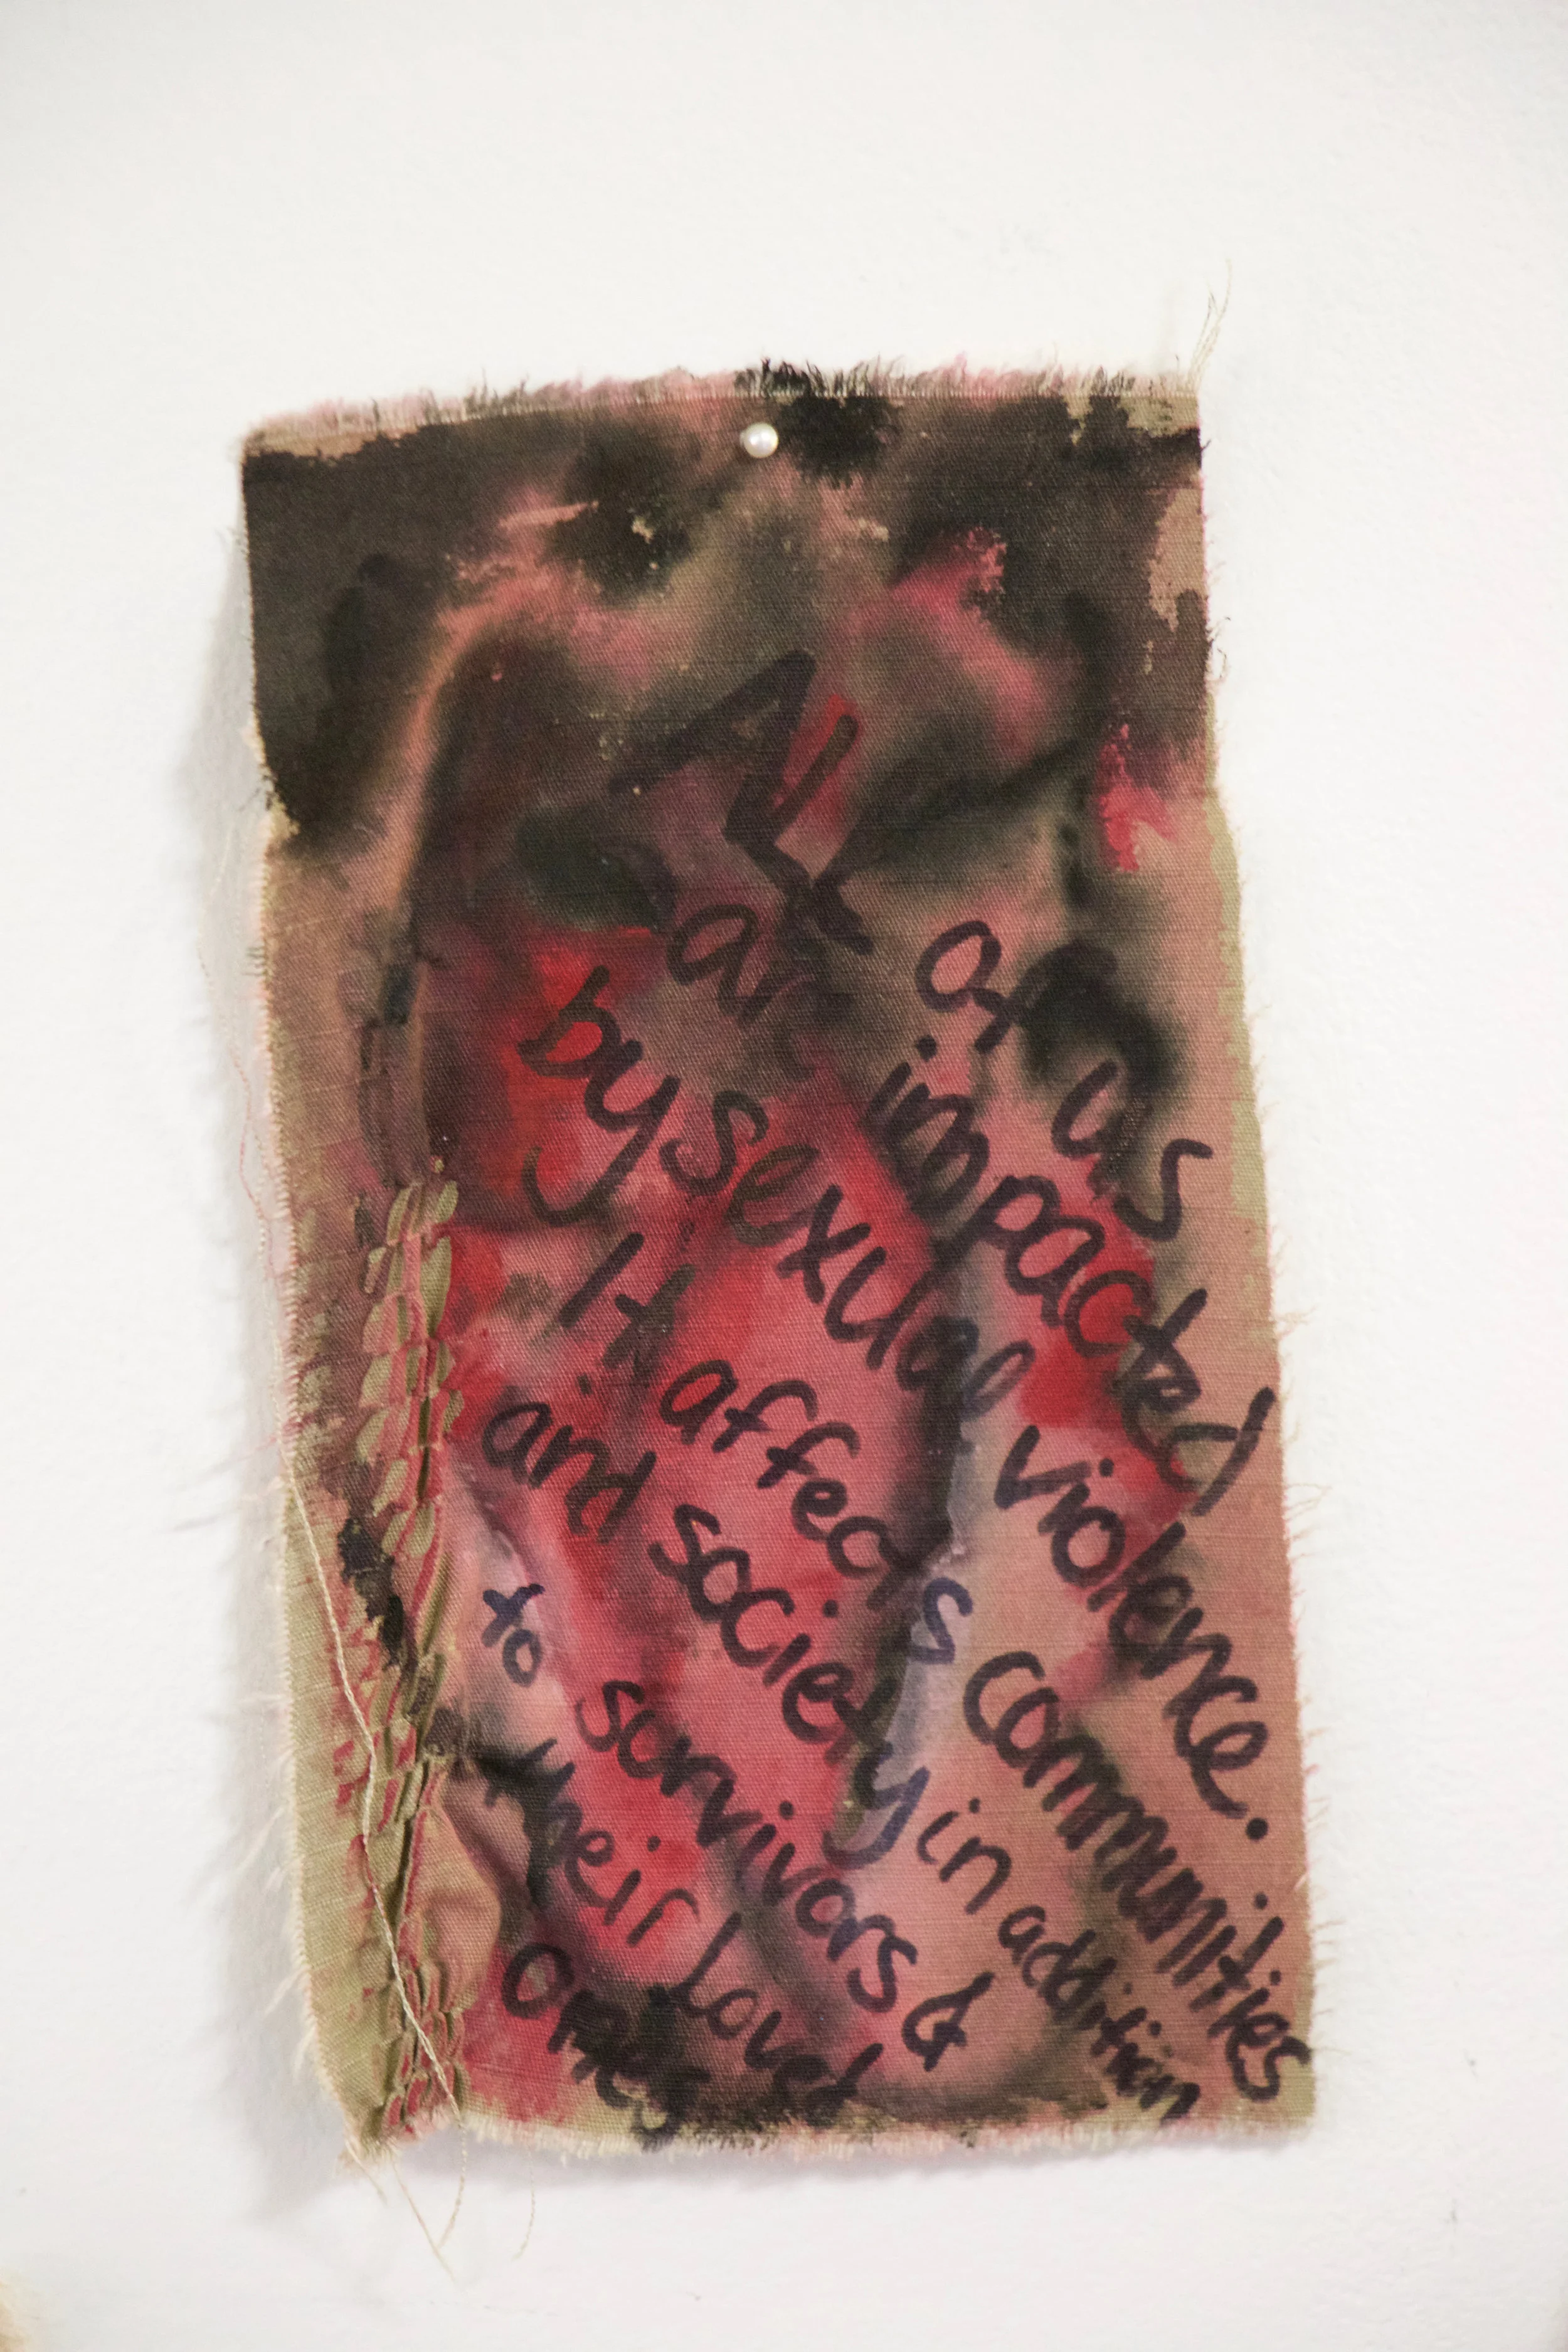 All of us
are impacted
by sexual violence.
It affects communities
and society in addition
to survivors &
their loved
ones